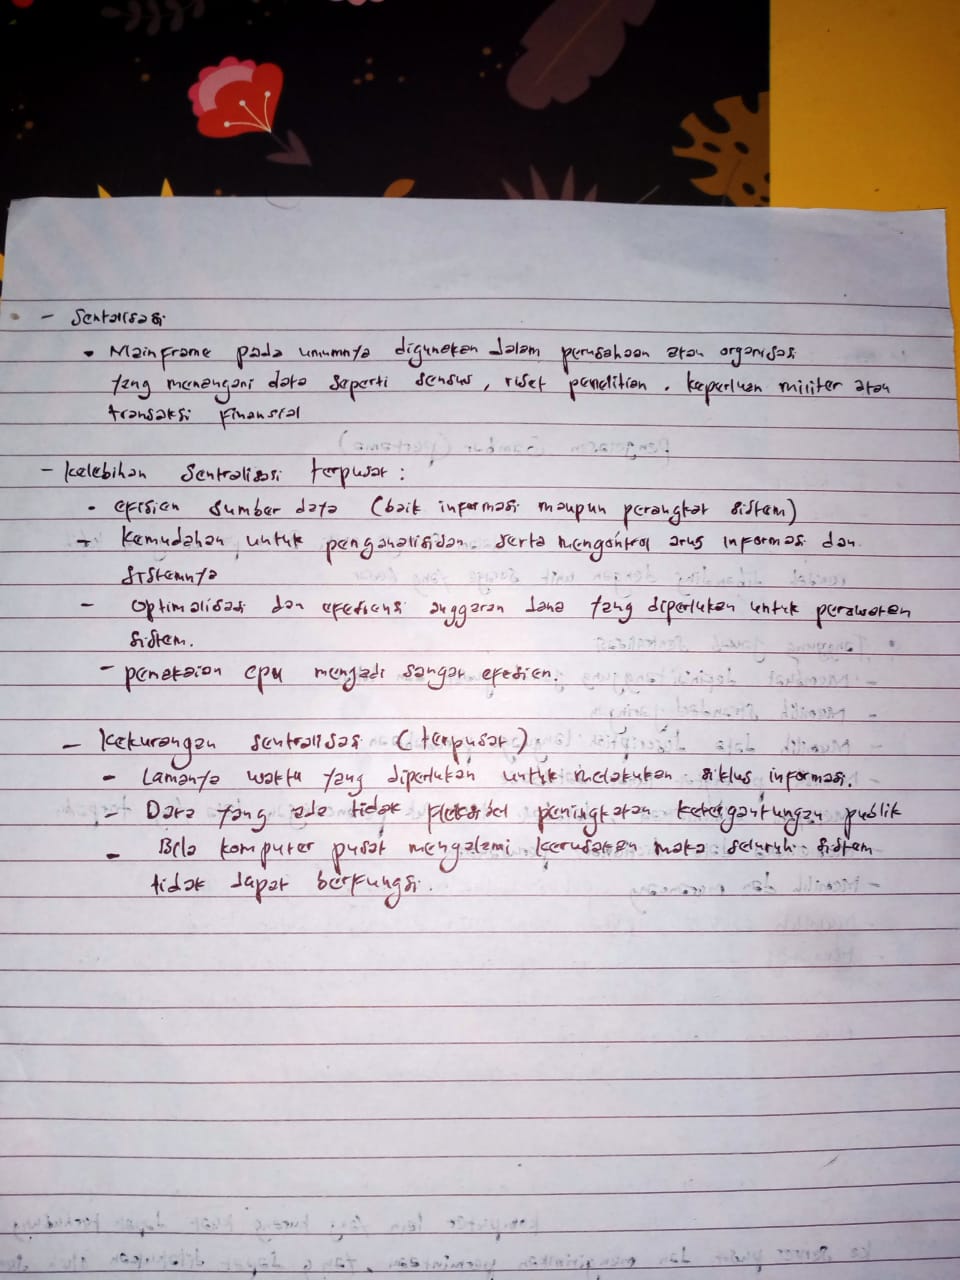 - Sentalisasi
• Mainframe pada umumnya digunakan dalam perusahaan atau organisasi
yang menangani data seperti sensus, riset penelitian. keperluan militer atau
transaksi finansial
- kelebihan sentralisasi terpusat :
• efisien sumber daya (baik informasi maupun perangkat sistem)
- kemudahan untuk penganalisidan serta mengontrol arus informasi dan
sistemnya
- Optimalisasi dan efesiensi anggaran dana yang diperlukan untuk perawatan
sistem.
- pemakaian cpu menjadi sangat efesien.
- kekurangan sentralisasi (terpusat)
- Lamanya waktu yang diperlukan untuk melakukan siklus informasi.
- Data yang ada tidak fleksibel peningkatan ketergantungan publik
- Bila komputer pusat mengalami kerusakan maka seluruh sistem
tidak dapat berfungsi.